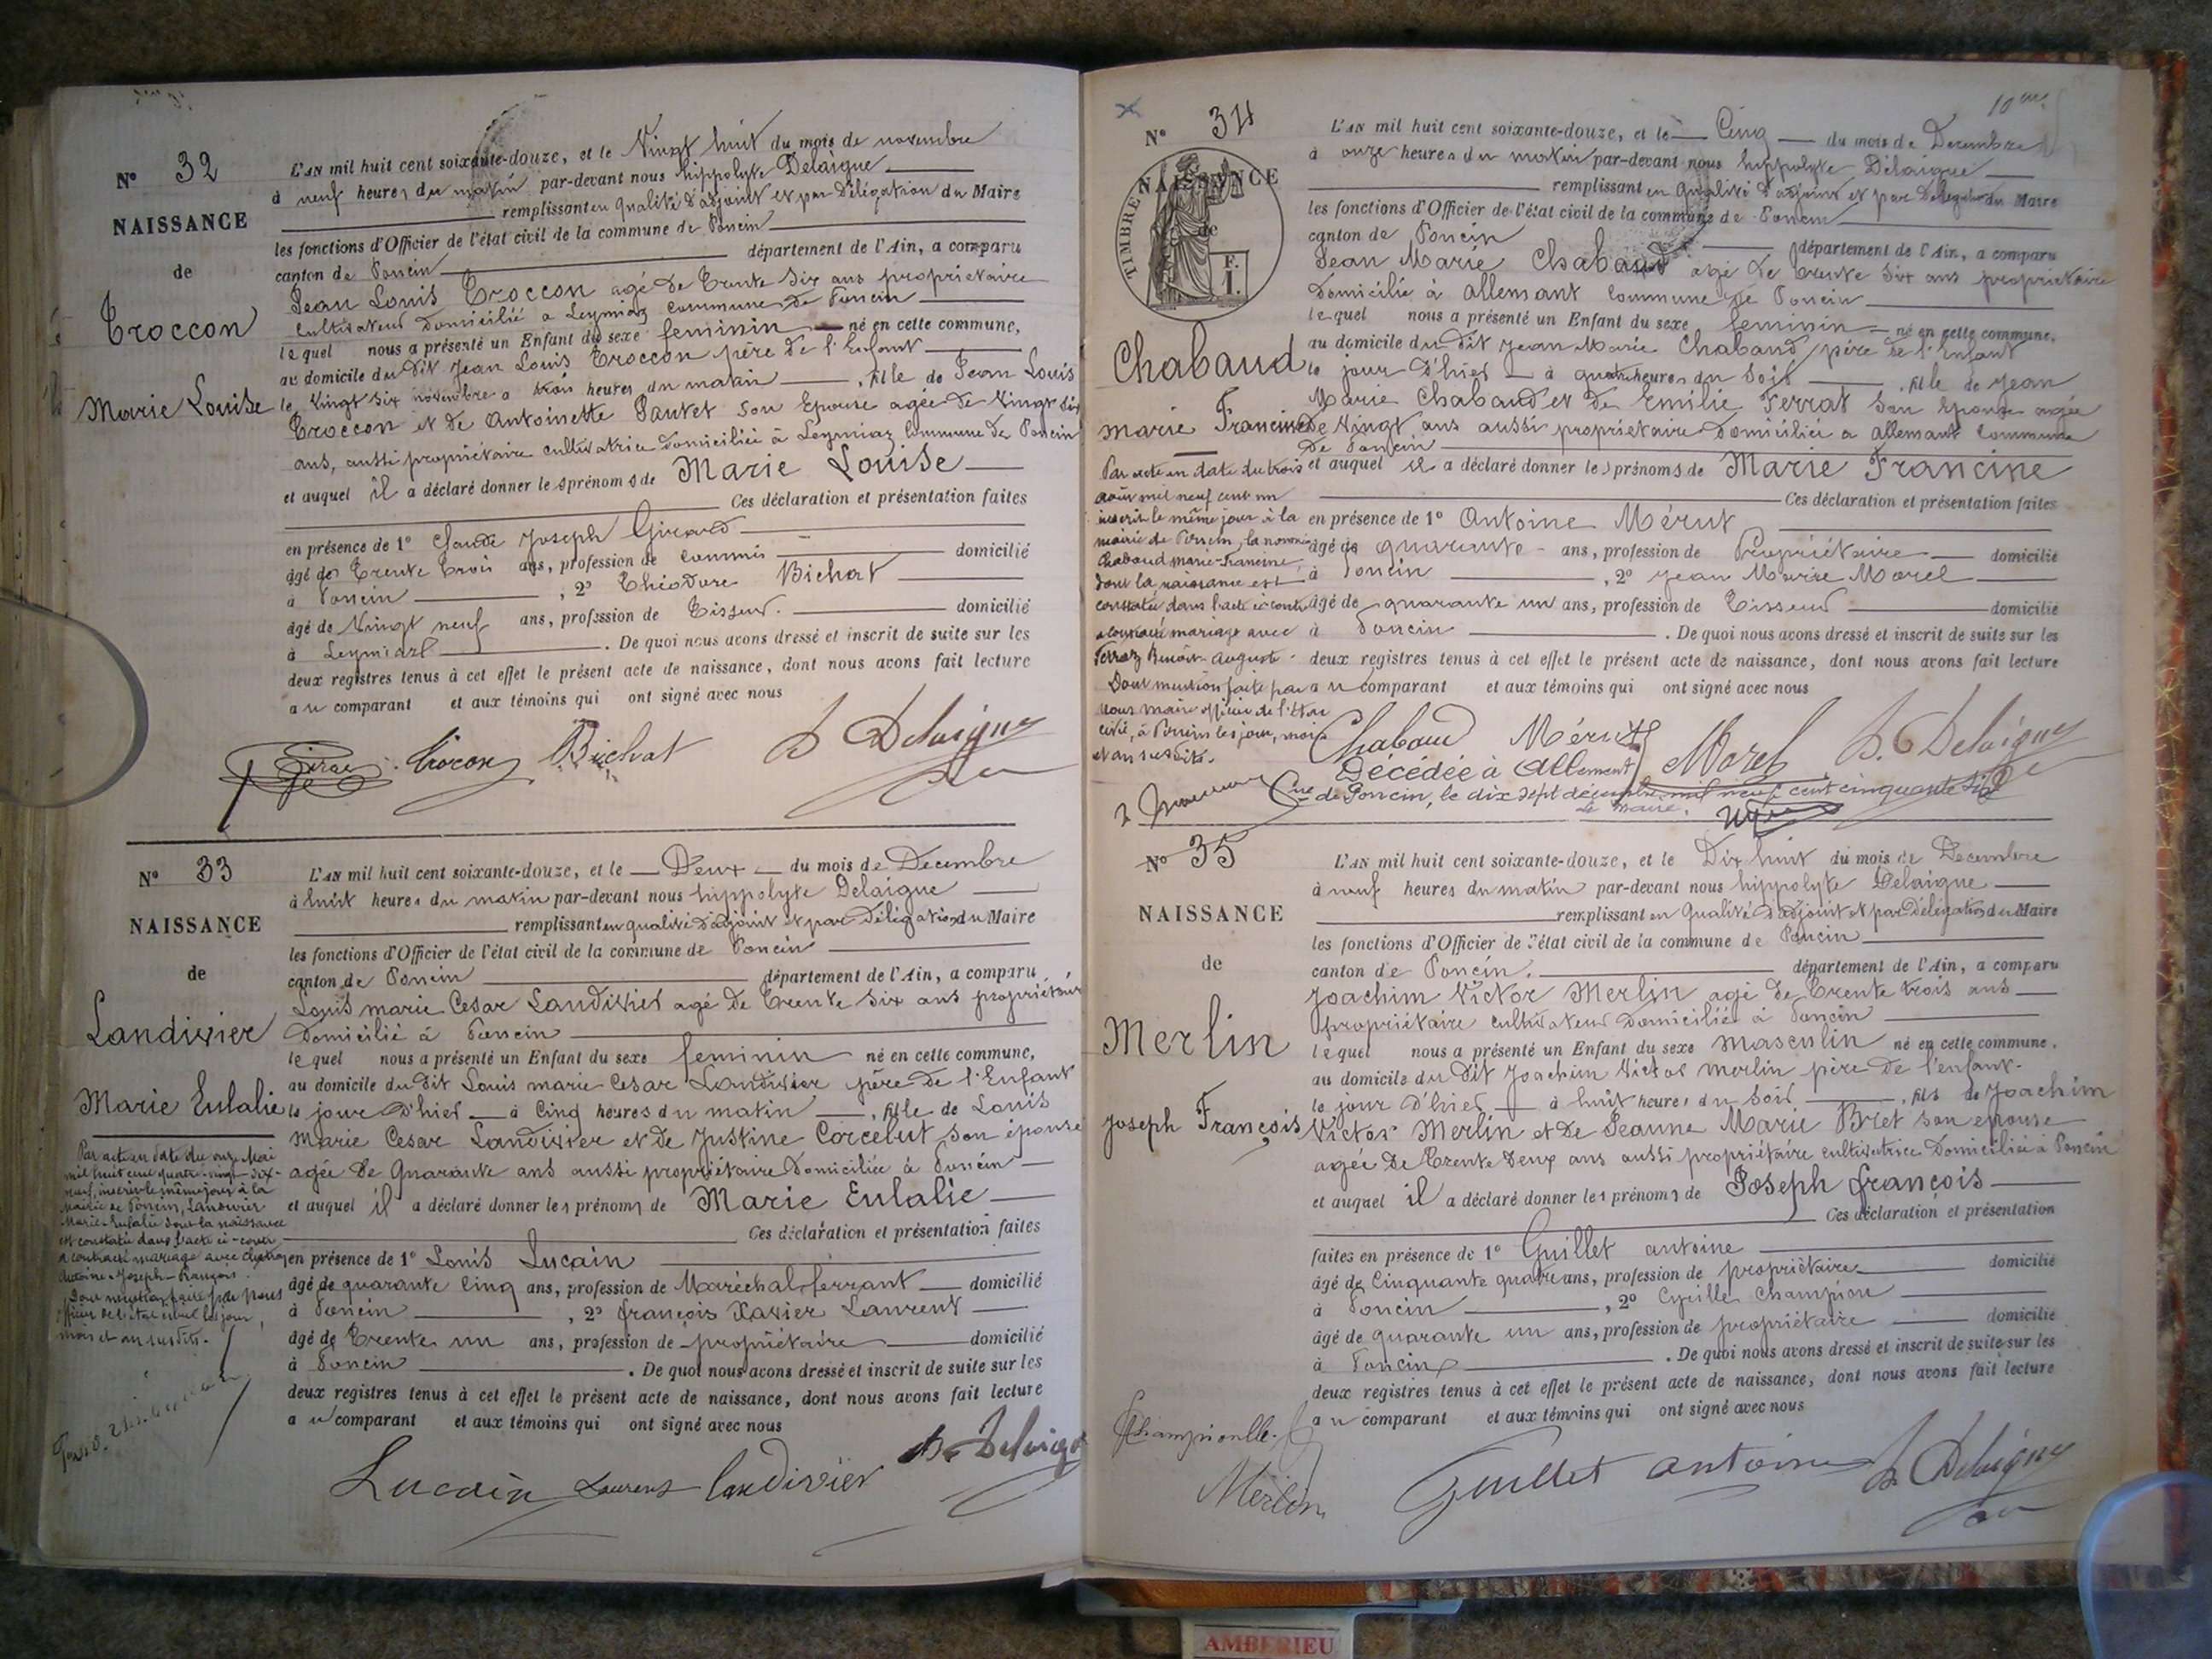 N° 32
NAISSANCE
de
Troccon
Marie Louise
L'AN mil huit cent soixante-douze, et le Vingt huit du mois de novembre
à neuf heures du matin par-devant nous hippolyte Delaigue
remplissant en qualité d'adjoint et par Délégation du Maire
les fonctions d'Officier de l'état civil de la commune de Poncin
canton de Poncin département de l'Ain, a comparu
Jean Louis Troccon agé de Trente Six ans propriétaire
Cultivateur Domicilié a Leymiaz Commune de Poncin
lequel nous a présenté un Enfant du sexe feminin né en cette commune,
au domicile du dit Jean Louis Troccon père de l'Enfant
le Vingt Six novembre a trois heures du matin , fille de Jean Louis
Troccon et de Antoinette Pautet Son Epouse agée de Vingt Six
ans, aussi propriétaire cultivatrice domiciliée à Leymiaz Commune de Poncin
et auquel il a déclaré donner les prénoms de Marie Louise
Ces déclaration et présentation faites
en présence de 1° Claude Joseph Girard
âgé de Trente Trois ans, profession de Commis domicilié
à Poncin , 2° Théodore Bichat
âgé de Vingt neuf ans, profession de Tisseur. domicilié
à Leymiaz . De quoi nous avons dressé et inscrit de suite sur les
deux registres tenus à cet effet le présent acte de naissance, dont nous avons fait lecture
au comparant et aux témoins qui ont signé avec nous
Trocon Bichat h Delaigue
N° 33
NAISSANCE
de
Landivier
Marie Eulalie
Par acte en date du onze Mai
mil huit cent quatre-vingt-dix-
neuf, inscrit le même jour à la
mairie de Poncin, Landivier
Marie-Eulalie dont la naissance
est constatée dans l'acte ci-contre
a contracté mariage avec
Antoine-Joseph-François.
Dont mention faite par nous
officier de l'état civil les jour,
mois et an susdits.
L'AN mil huit cent soixante-douze, et le Deux du mois de Decembre
à huit heures du matin par-devant nous hippolyte Delaigue
remplissant en qualité d'adjoint et par Délégation du Maire
les fonctions d'Officier de l'état civil de la commune de Poncin
canton de Poncin département de l'Ain, a comparu
Louis marie Cesar Landivier agé de Trente Six ans propriétaire
Domicilié à Poncin
lequel nous a présenté un Enfant du sexe feminin né en cette commune,
au domicile du dit Louis marie Cesar Landivier père de l'Enfant
le jour d'hier à Cinq heures du matin , fille de Louis
Marie Cesar Landivier et de Justine Corcelut son épouse
agée de Quarante ans aussi propriétaire Domiciliée à Poncin
et auquel il a déclaré donner les prénoms de Marie Eulalie
Ces déclaration et présentation faites
en présence de 1° Louis Lucain
âgé de quarante Cinq ans, profession de Maréchal ferrant domicilié
à Poncin , 2° françois Xavier Laurent
âgé de Trente un ans, profession de propriétaire domicilié
à Poncin . De quoi nous avons dressé et inscrit de suite sur les
deux registres tenus à cet effet le présent acte de naissance, dont nous avons fait lecture
au comparant et aux témoins qui ont signé avec nous
Lucain Laurent landivier h Delaigue
10me
N° 34
NAISSANCE
de
TIMBRE
F.
1.
Chabaud
Marie Francine
Par acte en date du trois
août mil neuf cent un
inscrit le même jour à la
mairie de Poncin, la nommée
Chabaud marie-Francine
dont la naissance est
constatée dans l'acte ci-contre
a contracté mariage avec
Ferraz Benoit-Auguste.
Dont mention faite par
nous maire officier de l'état
civil, à Poncin les jour, mois
et an susdits.
L'AN mil huit cent soixante-douze, et le Cinq du mois de Decembre
à onze heures du matin par-devant nous hippolyte Delaigue
remplissant en Qualité d'adjoint et par Délégation du Maire
les fonctions d'Officier de l'état civil de la commune de Poncin
canton de Poncin département de l'Ain, a comparu
Jean Marie Chabaud agé de Trente Six ans propriétaire
Domicilié à allement Commune de Poncin
lequel nous a présenté un Enfant du sexe feminin né en cette commune,
au domicile du dit Jean Marie Chabaud père de l'Enfant
le jour d'hier à quatre heures du Soir , fille de Jean
Marie Chabaud et de Emilie Ferrat Son Epouse agée
De Vingt ans aussi propriétaire Domiciliée a allement Commune
De Poncin
et auquel il a déclaré donner les prénoms de Marie Francine
Ces déclaration et présentation faites
en présence de 1° Antoine Mérut
âgé de quarante ans, profession de Propriétaire domicilié
à Poncin , 2° Jean Marie Morel
âgé de quarante un ans, profession de Tisseur domicilié
à Poncin . De quoi nous avons dressé et inscrit de suite sur les
deux registres tenus à cet effet le présent acte de naissance, dont nous avons fait lecture
au comparant et aux témoins qui ont signé avec nous
Chabaud Mérut Morel h. Delaigue
Décédée à Allement
Cne de Poncin, le dix sept décembre mil neuf cent cinquante six
Le Maire.
N° 35
NAISSANCE
de
Merlin
Joseph François
L'AN mil huit cent soixante-douze, et le Dix huit du mois de Decembre
à neuf heures du matin par-devant nous hippolyte Delaigue
remplissant en Qualité d'adjoint et par Délégation du Maire
les fonctions d'Officier de l'état civil de la commune de Poncin
canton de Poncin. département de l'Ain, a comparu
Joachim Victor Merlin agé de Trente trois ans
propriétaire cultivateur Domicilié à Poncin
lequel nous a présenté un Enfant du sexe masculin né en cette commune,
au domicile du dit Joachim Victor Merlin père de l'enfant.
le jour d'hier à huit heures du Soir , fils de Joachim
Victor Merlin et de Jeanne Marie Bret son epouse
agée de Trente Deux ans aussi propriétaire cultivatrice Domiciliée à Poncin
et auquel il a déclaré donner les prénoms de Joseph françois
Ces déclaration et présentation
faites en présence de 1° Guillet antoine
âgé de Cinquante quatre ans, profession de propriétaire domicilié
à Poncin , 2° Cyrille Champion
âgé de quarante un ans, profession de propriétaire domicilié
à Poncin . De quoi nous avons dressé et inscrit de suite sur les
deux registres tenus à cet effet le présent acte de naissance, dont nous avons fait lecture
au comparant et aux témoins qui ont signé avec nous
Merlin Guillet antoine h Delaigue
AMBERIEU